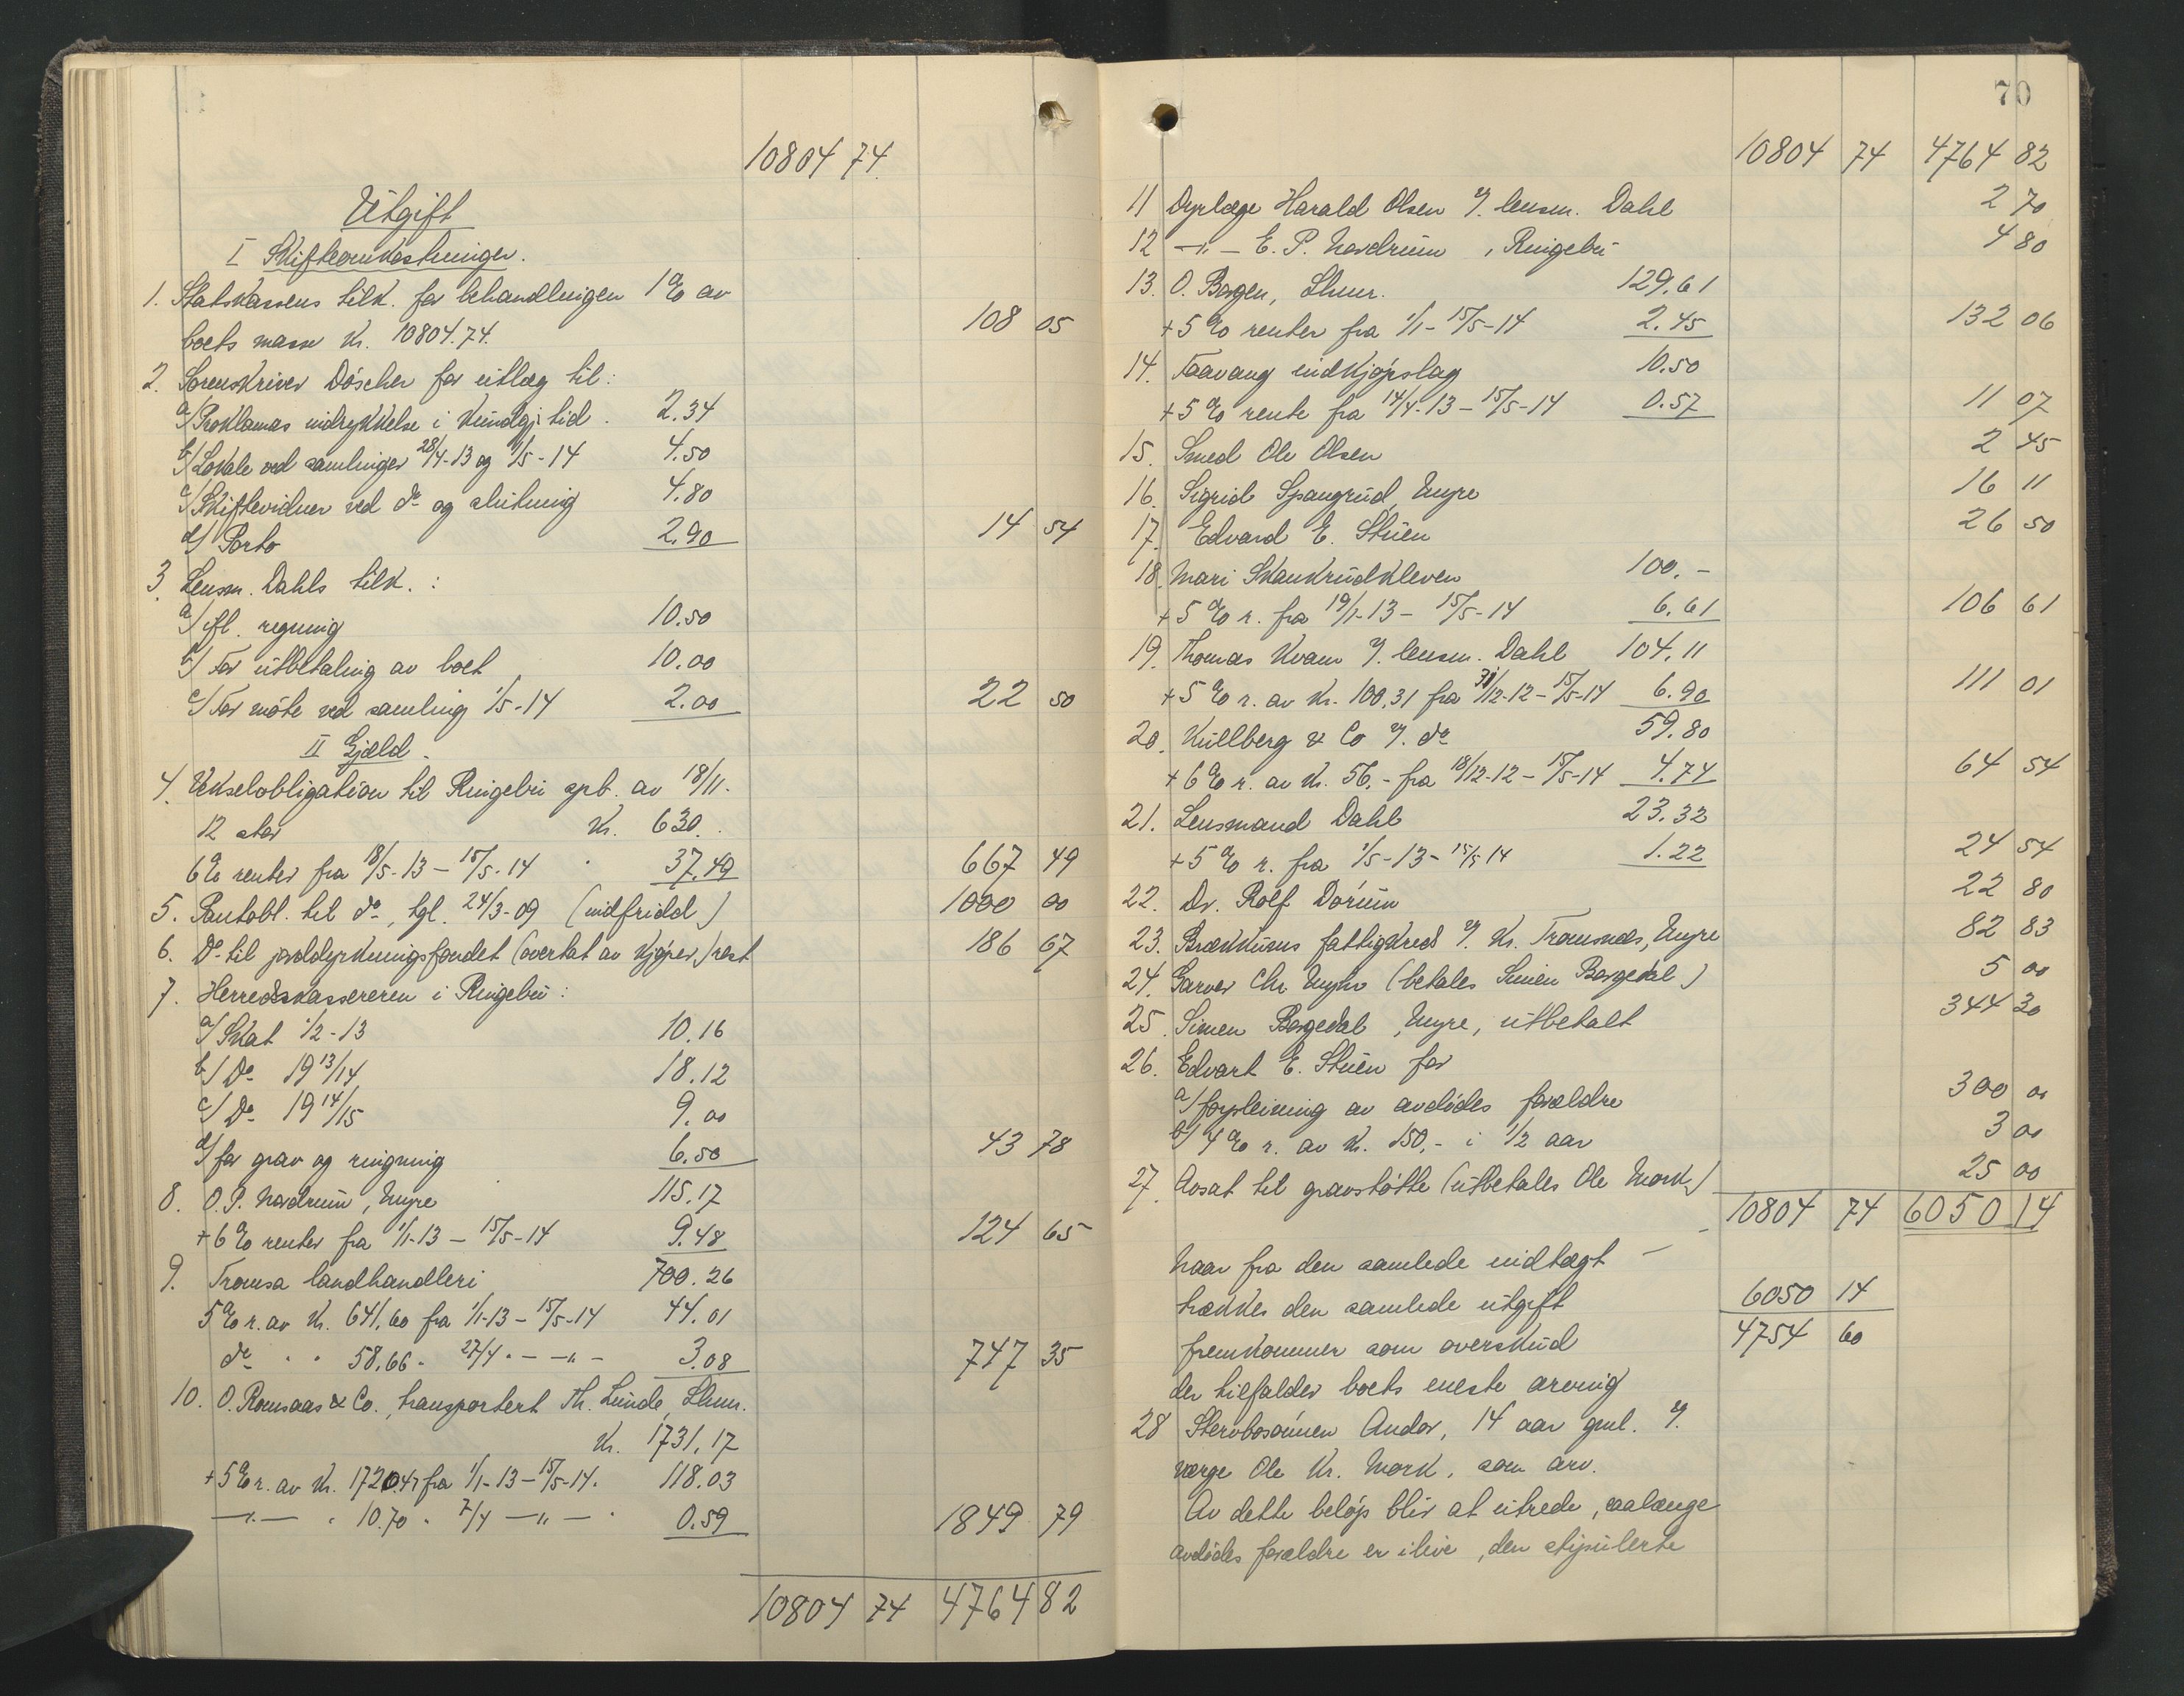 10804 74
Utgift
I Skifteomkostninger.
1. Statskassens tilk. for behandlingen 1% av
boets masse kr. 10804.74. 108 05
2. Sorenskriver Döscher for utlæg til:
a/ Proklamas indrykkelse i Kundgj. tid. 2.34
b/ Lokale ved samlinger 28/4-13 og 1/5-14 4.50
c/ Skiftevidner ved do og slutning 4.80
d/ Porto 2.90 14 54
3. Lensm. Dahls tilk. :
a/ ifl. regning 10.50
b/ For utbetaling av boet 10.00
c/ For möte ved samling 1/5-14 2.00 22 50
II Gjæld.
4. Vekselobligation til Ringebu spb. av 18/11.
12 stor kr. 630.
6% renter fra 18/5-13 - 15/5-14 " 37.49 667 49
5. Pantobl. til do, tgl. 24/3-09 (indfridd) 1000 00
6. Do til jorddyrkningsfondet (overtat av kjøper) rest 186 67
7. Herredskassereren i Ringebu:
a/ Skat 1/2-13 10.16
b/ Do 1913/14 18.12
c/ Do 1914/15 9.00
d/ for grav og ringning 6.50 43 78
8. O. P. Nordrum, Enyre 115.17
+ 6% renter fra 1/1-13 - 15/5-14 9.48 124 65
9. Tromsa landhandleri 700.26
5% r. av kr. 641,60 fra 1/1-13 - 15/5-14 44.01
do " " 58.66 " 27/4 " - -"- 3.08 747 35
10. O. Romsaas & Co., transportert Th. Lunde, Lhmr.
kr. 1731.17
+ 5% r. av kr. 1720.47 fra 1/1-13 - 15/5-14. 118.03
-"- " 10.70 " 7/4 -"- " 0.59 1849 79
10804 74 4764 82
70
10804 74 4764 82
11 Dyrlæge Harald Olsen v. lensm. Dahl 2 70
12 -"- E. P. Nordrum, Ringebu 4 80
13. O. Bergen, Lhmr. 129.61
+ 5% renter fra 1/1 - 15/5-14 2.45 132 06
14. Faavang indkjøpslag 10.50
+ 5% rente fra 14/4-13 - 15/5-14 0.57 11 07
15. Smed Ole Olsen 2 45
16. Sigrid Spangrud, Enyre 16 11
17. Edvard E. Stuen 26 50
18. Mari Skankrudkleven 100.-
+ 5% r. fra 19/1-13 - 15/5-14 6.61 106 61
19. Thomas Kvam v. lensm. Dahl 104.11
+ 5% r. av kr. 100,31 fra 31/12-12 - 15/5-14 6.90 111 01
20. Kullberg & Co v. do 59.80
+ 6% r. av kr. 56,- fra 18/12-12 - 15/5-14 4.74 64 54
21. Lensmand Dahl 23.32
+ 5% r. fra 1/5-13 - 15/5 14 1.22 24 54
22. Dr. Rolf Dorum 22 80
23. Brækkums fattigkreds v. Kr. Tromsnes, Enyre 82 83
24. Garver Chr. (betales Simen Borgedal) 5 00
25. Simen Borgedal, Enyre, utbetalt 344 30
26. Edvart E. Stuen for
a/ forpleining av avdödes forældre 300 00
b/ 4% r. av kr. 150,- i 1/2 aar 3 00
27. Avsat til gravstötte (utbetales Ole Mork) 25 00
10804 74 6050 14
Naar fra den samlede indtægt -
trækkes den samlede utgift 6050 14
fremkommer som overskud 4754 60
der tilfalder boets eneste arving
28 Stervbosönnen Andor, 14 aar gml. v.
verge Ole Kr. Mork, som arv.
Av dette belöp blir at utrede, saalænge
avdödes forældre er ilive, den stipulerte